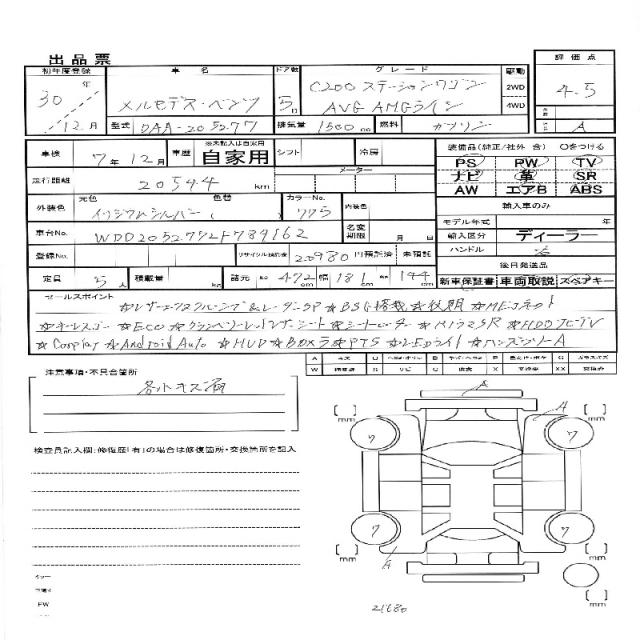 出品票
初年度登録 車名 ドア数 グレード 駆動 評価点
30年 メルセデス・ベンツ 5 C200 ステーションワゴン 2WD 4.5
12月 AVG AMGライン 4WD A
型式 DAA-205277 排気量 1500cc 燃料 ガソリン
車検 7年12月 車歴 ※未記入は自家用 自家用 シフト 冷房
装備品(純正/社外 含) ○をつける
PS PW TV
ナビ 革 SR
AW エアB ABS
走行距離 20544 km メーター
外装色 元色 イリジウムシルバー 色替 ( ) カラーNo. 775 内装色
輸入車のみ
モデル年式 年
車台No. WDD2052772F789162 名変期限 月 日
輸入区分 ディーラー
ハンドル 右
登録No. リサイクル預託金 20980 円預託済 未預託
後日発送品
定員 5人 積載量 kg 諸元 長 472 cm 幅 181 cm 高 144 cm
新車保証書 車両取説 スペアキー
セールスポイント
☆レザーエクスクルーシブ&レーダーSP ☆BSG搭載 ☆ MEコネクト
☆キーレスゴー ☆ECO ☆ ☆シートヒーター ☆パノラマSR ☆HDDナビTV
☆Carplay ☆Android Auto ☆HUD ☆ ☆PTS ☆LEDライト ☆ハンズフリーA
注意事項・不具合箇所
各小キズ有
検査員記入欄:修復歴「有」の場合は修復箇所・交換箇所を記入
A
A
[ ] mm ワ ワ [ ] mm
[ ] mm ワ ワ [ ] mm
A
A
21680